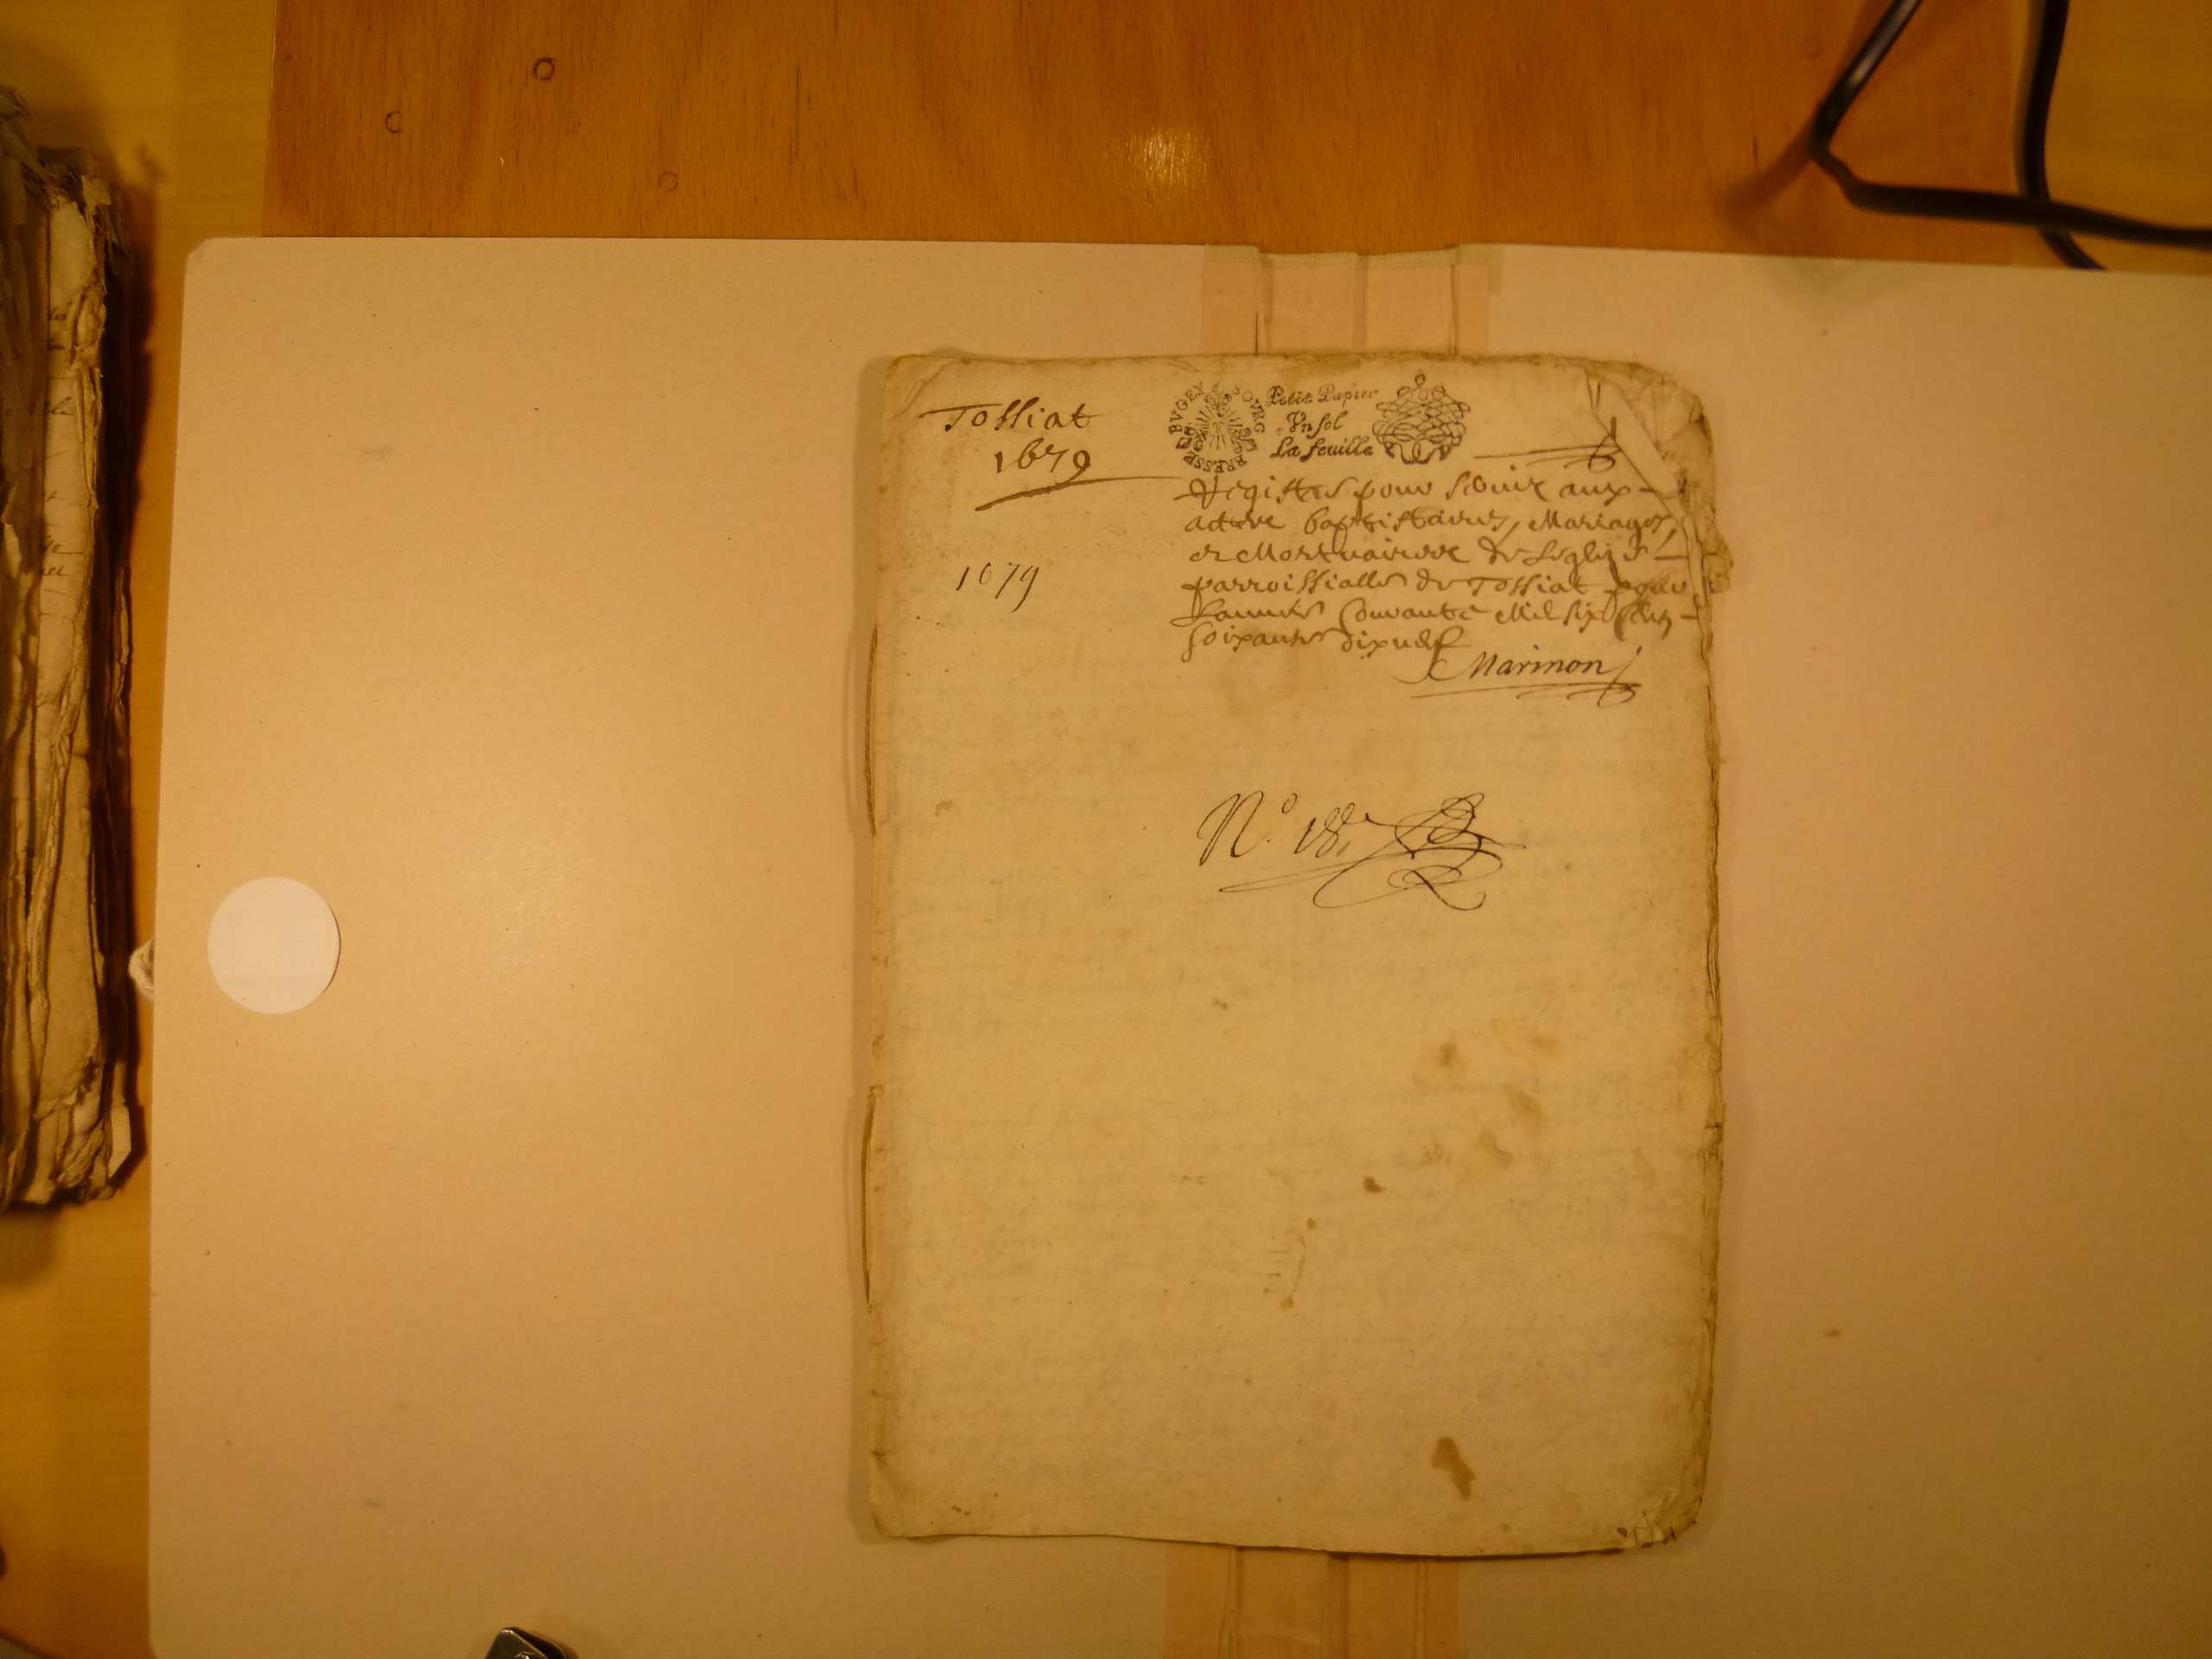 Tossiat
1679
1679
BVGEY BOVRG BRESSE
Petit Papier
Vn sol
La feuille
Registres pour servir aux
actes baptistaires, Mariages
et Mortuaires de Leglize
parroissialle de Tossiat pour
Lannée Courante Mil six Cens
soixante dix neuf
Marinon
N.º 18.